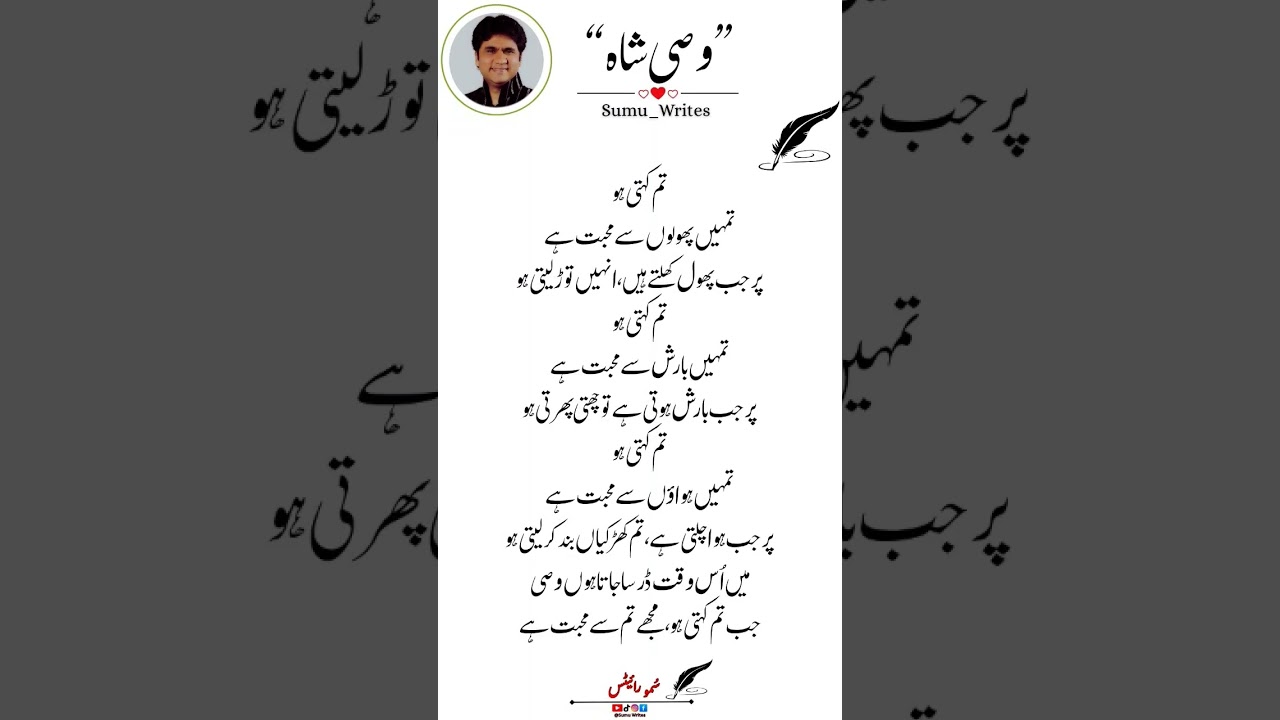 ”وصی شاہ“
Sumu_Writes
تم کہتی ہو
تمہیں پھولوں سے محبت ہے
پر جب پھول کھلتے ہیں، انہیں توڑ لیتی ہو
تم کہتی ہو
تمہیں بارش سے محبت ہے
پر جب بارش ہوتی ہے تو چھپتی پھرتی ہو
تم کہتی ہو
تمہیں ہواؤں سے محبت ہے
پر جب ہوا چلتی ہے، تم کھڑکیاں بند کر لیتی ہو
میں اُس وقت ڈر سا جاتا ہوں وصی
جب تم کہتی ہو، مجھے تم سے محبت ہے
سُمو رائیٹس
@Sumu Writes